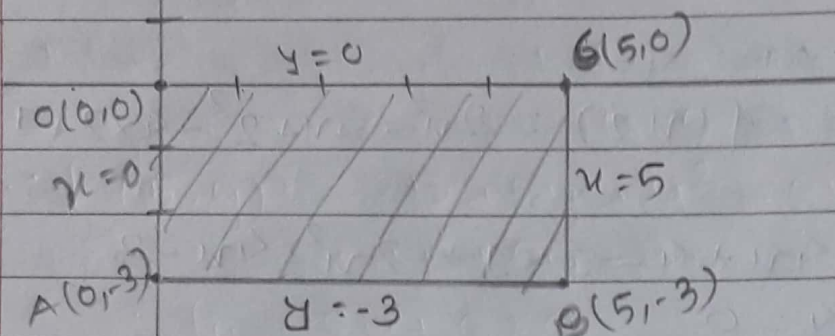 y=0
C(5,0)
O(0,0)
x=0
x=5
A(0,-3)
y=-3
B(5,-3)